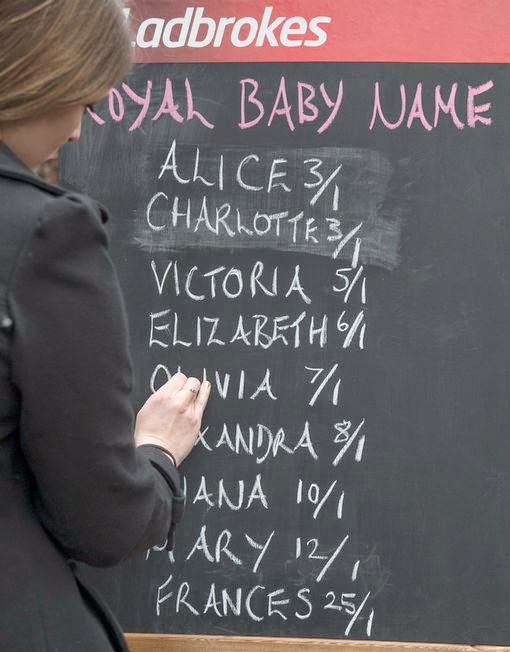 Ladbrokes
ROYAL BABY NAME
ALICE 3/1
CHARLOTTE 3/1
VICTORIA 5/1
ELIZABETH 6/1
OLIVIA 7/1
XANDRA 8/1
IANA 10/1
MARY 12/1
FRANCES 25/1